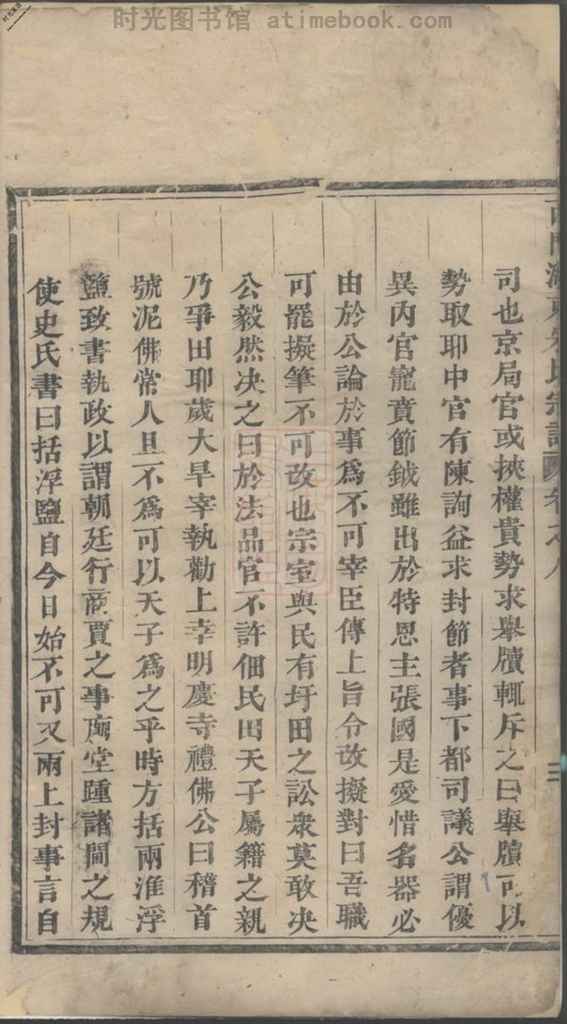 时光图书馆 atimebook.com
宗譜 卷之八
三
司也京局官或挾權貴勢求舉牘輒斥之曰舉牘可以
勢取耶中官有陳詢益求封節者事下都司議公謂優
異內官寵賚節鉞雖出於特恩主張國是愛惜名器必
由於公論於事為不可宰臣傳上旨令改擬對曰吾職
可罷擬筆不可改也宗室與民有圩田之訟衆莫敢决
公毅然决之曰於法品官不許佃民田天子屬籍之親
乃爭田耶歲大旱宰執勸上幸明慶寺禮佛公曰稽首
號泥佛常人且不為可以天子為之乎時方括兩淮浮
鹽致書執政以謂朝廷行商賈之事廟堂踵諸閫之規
使史氏書曰括浮鹽自今日始不可又兩上封事言自